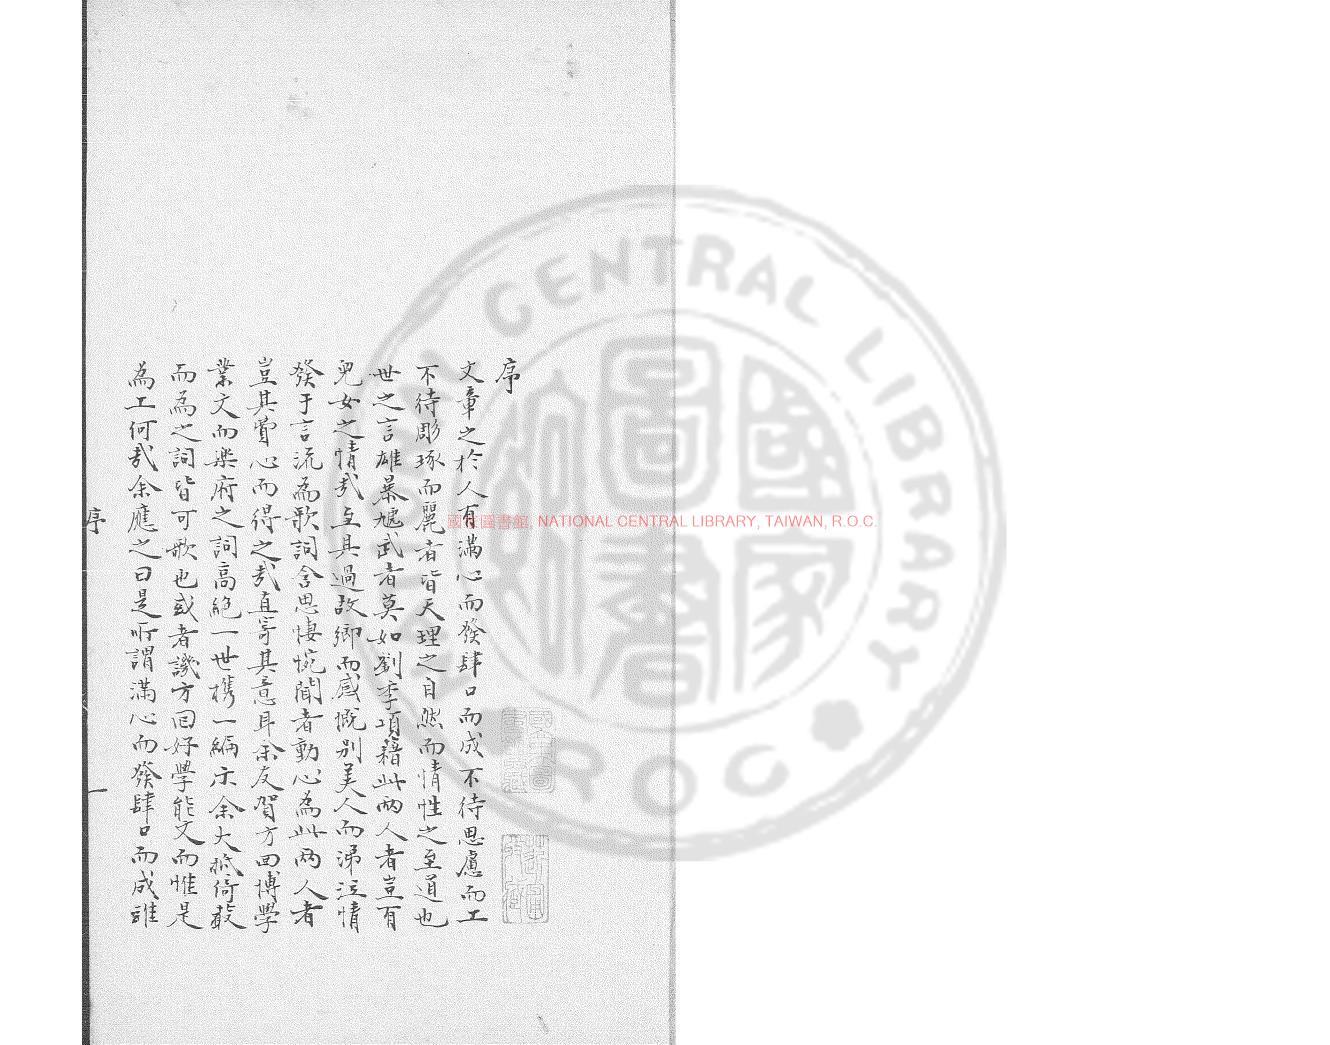 序
文章之於人有滿心而發肆口而成不待思慮而工
不待彫琢而麗者皆天理之自然而情性之至道也
世之言雄暴虓武者莫如劉季項籍此兩人者豈有
兒女之情哉至其過故鄉而感慨別美人而涕泣情
發于言流為歌詞含思悽惋聞者動心為此兩人者
豈其費心而得之哉直寄其意耳余友賀方回博學
業文而樂府之詞高絕一世携一編示余大抵倚聲
而為之詞皆可歌也或者譏方回好學能文而惟是
為工何哉余應之曰是所謂滿心而發肆口而成雖
序
一
國家圖書館, NATIONAL CENTRAL LIBRARY, TAIWAN, R.O.C.
CENTRAL LIBRARY
R O C
國家圖書館